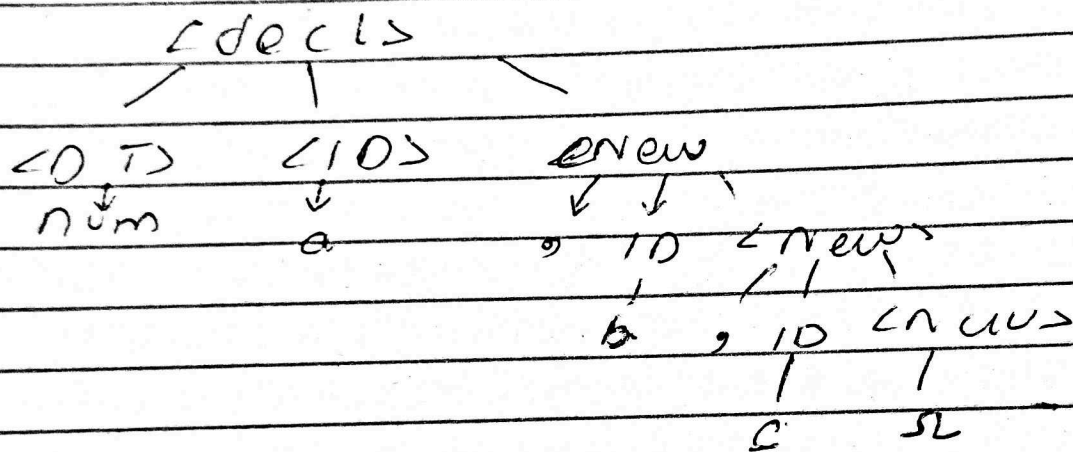 <decl>
<DT> <ID> <New
num a , ID <New>
b , ID <New>
c Ω